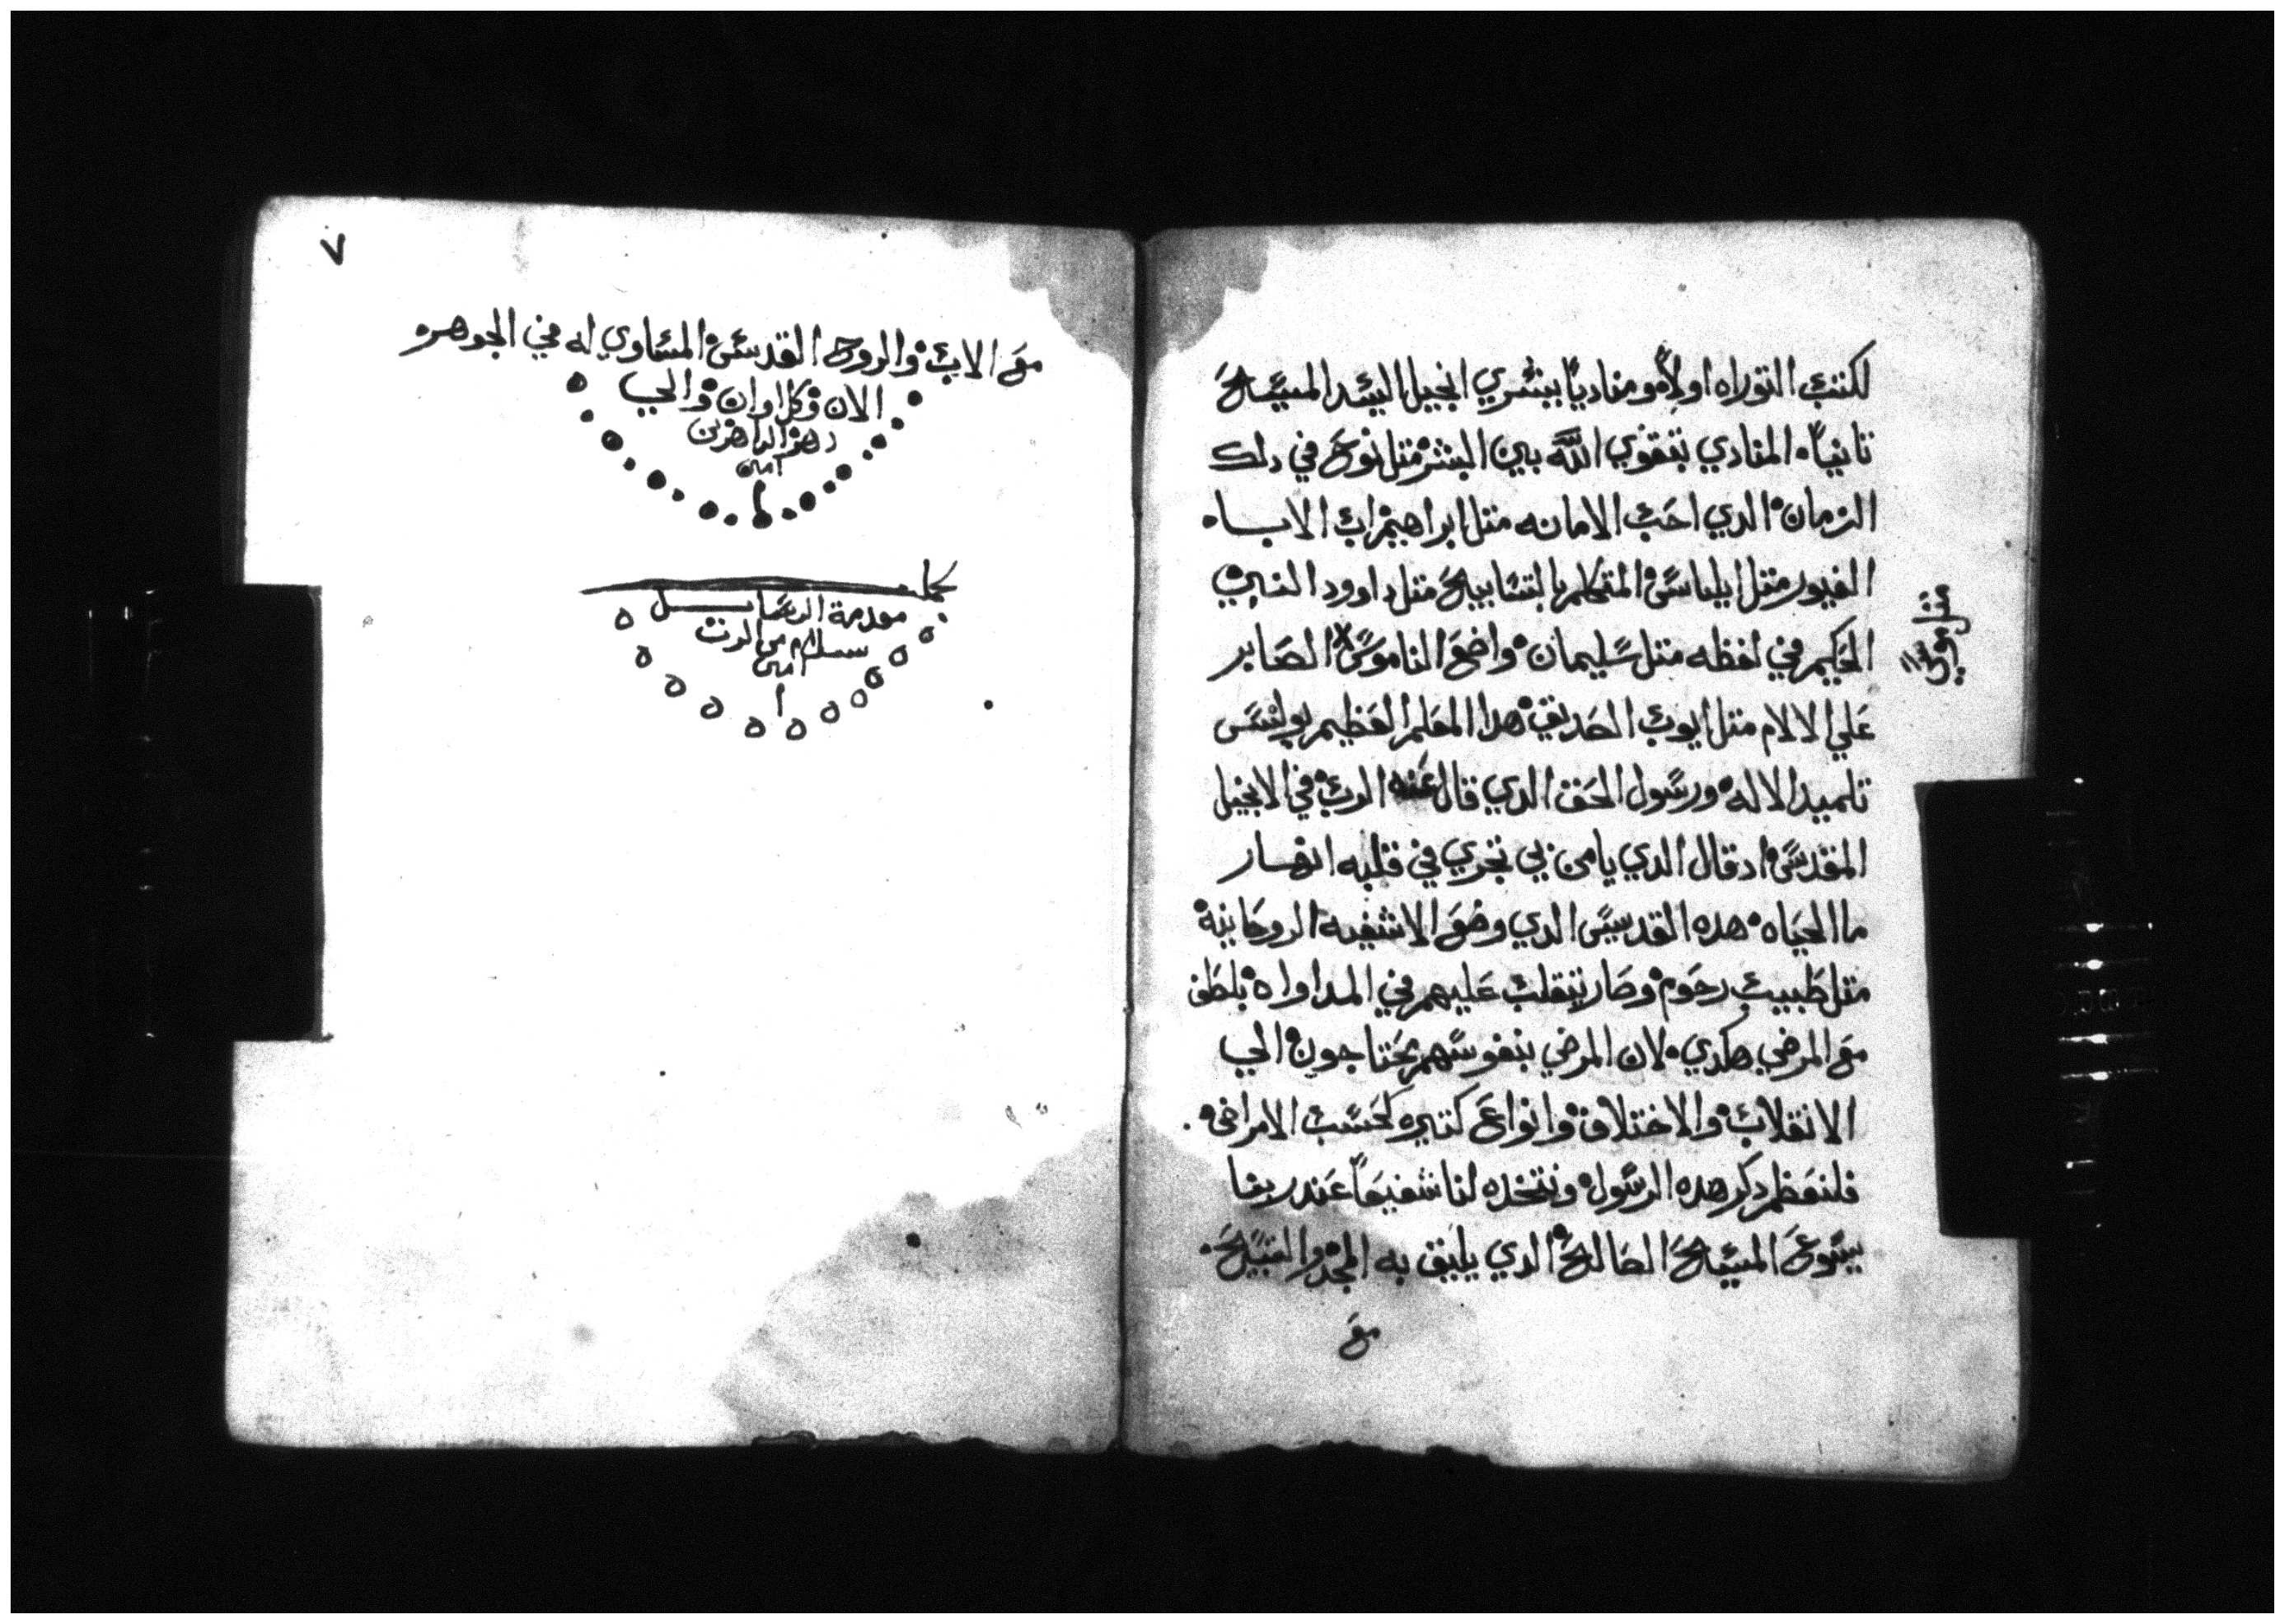 لكتب التوراه اولاً ومناديًا ببشري انجيل السيد المسيح
تانياً المنادي بتقوي الله بين البشر متل نوح في دلك
الزمان الدي احب الامانه متل ابراهيم اب الاباء
الغيور متل ايلياس المتكلم بالتسابيح متل داوود النبي
الحكيم في لفظه متل سليمان واضع الناموس الصابر
علي الالام متل ايوب الصديق هدا المعلم العظيم بولس
تلميد الاله ورسول الحق الدي قال عنه الرب في الانجيل
المقدس اد قال الدي يامن بي تجري في قلبه انهار
ما الحياه هده القديس الدي وضع الاشفيه الروحانية
متل طبيب رحوم وصار يتقلب عليهم في المداواه بلطف
مع المرضي هكدي لان المرضي بنفوسهم يحتاجون الي
الانقلاب والاختلاف وانواع كتيره كحسب الامراض
فلنعظم دكر هده الرسول ونتخده لنا شفيعاً عند ربنا
يسوع المسيح الصالح الدي يليق به المجد والتسبيح
مع
٧
مع الاب والروح القدس المساوي له في الجوهر
الان وكل اوان والي
دهر الداهرين
امين
كمل
مقدمة الرسايل
بسلام من الرب
امين